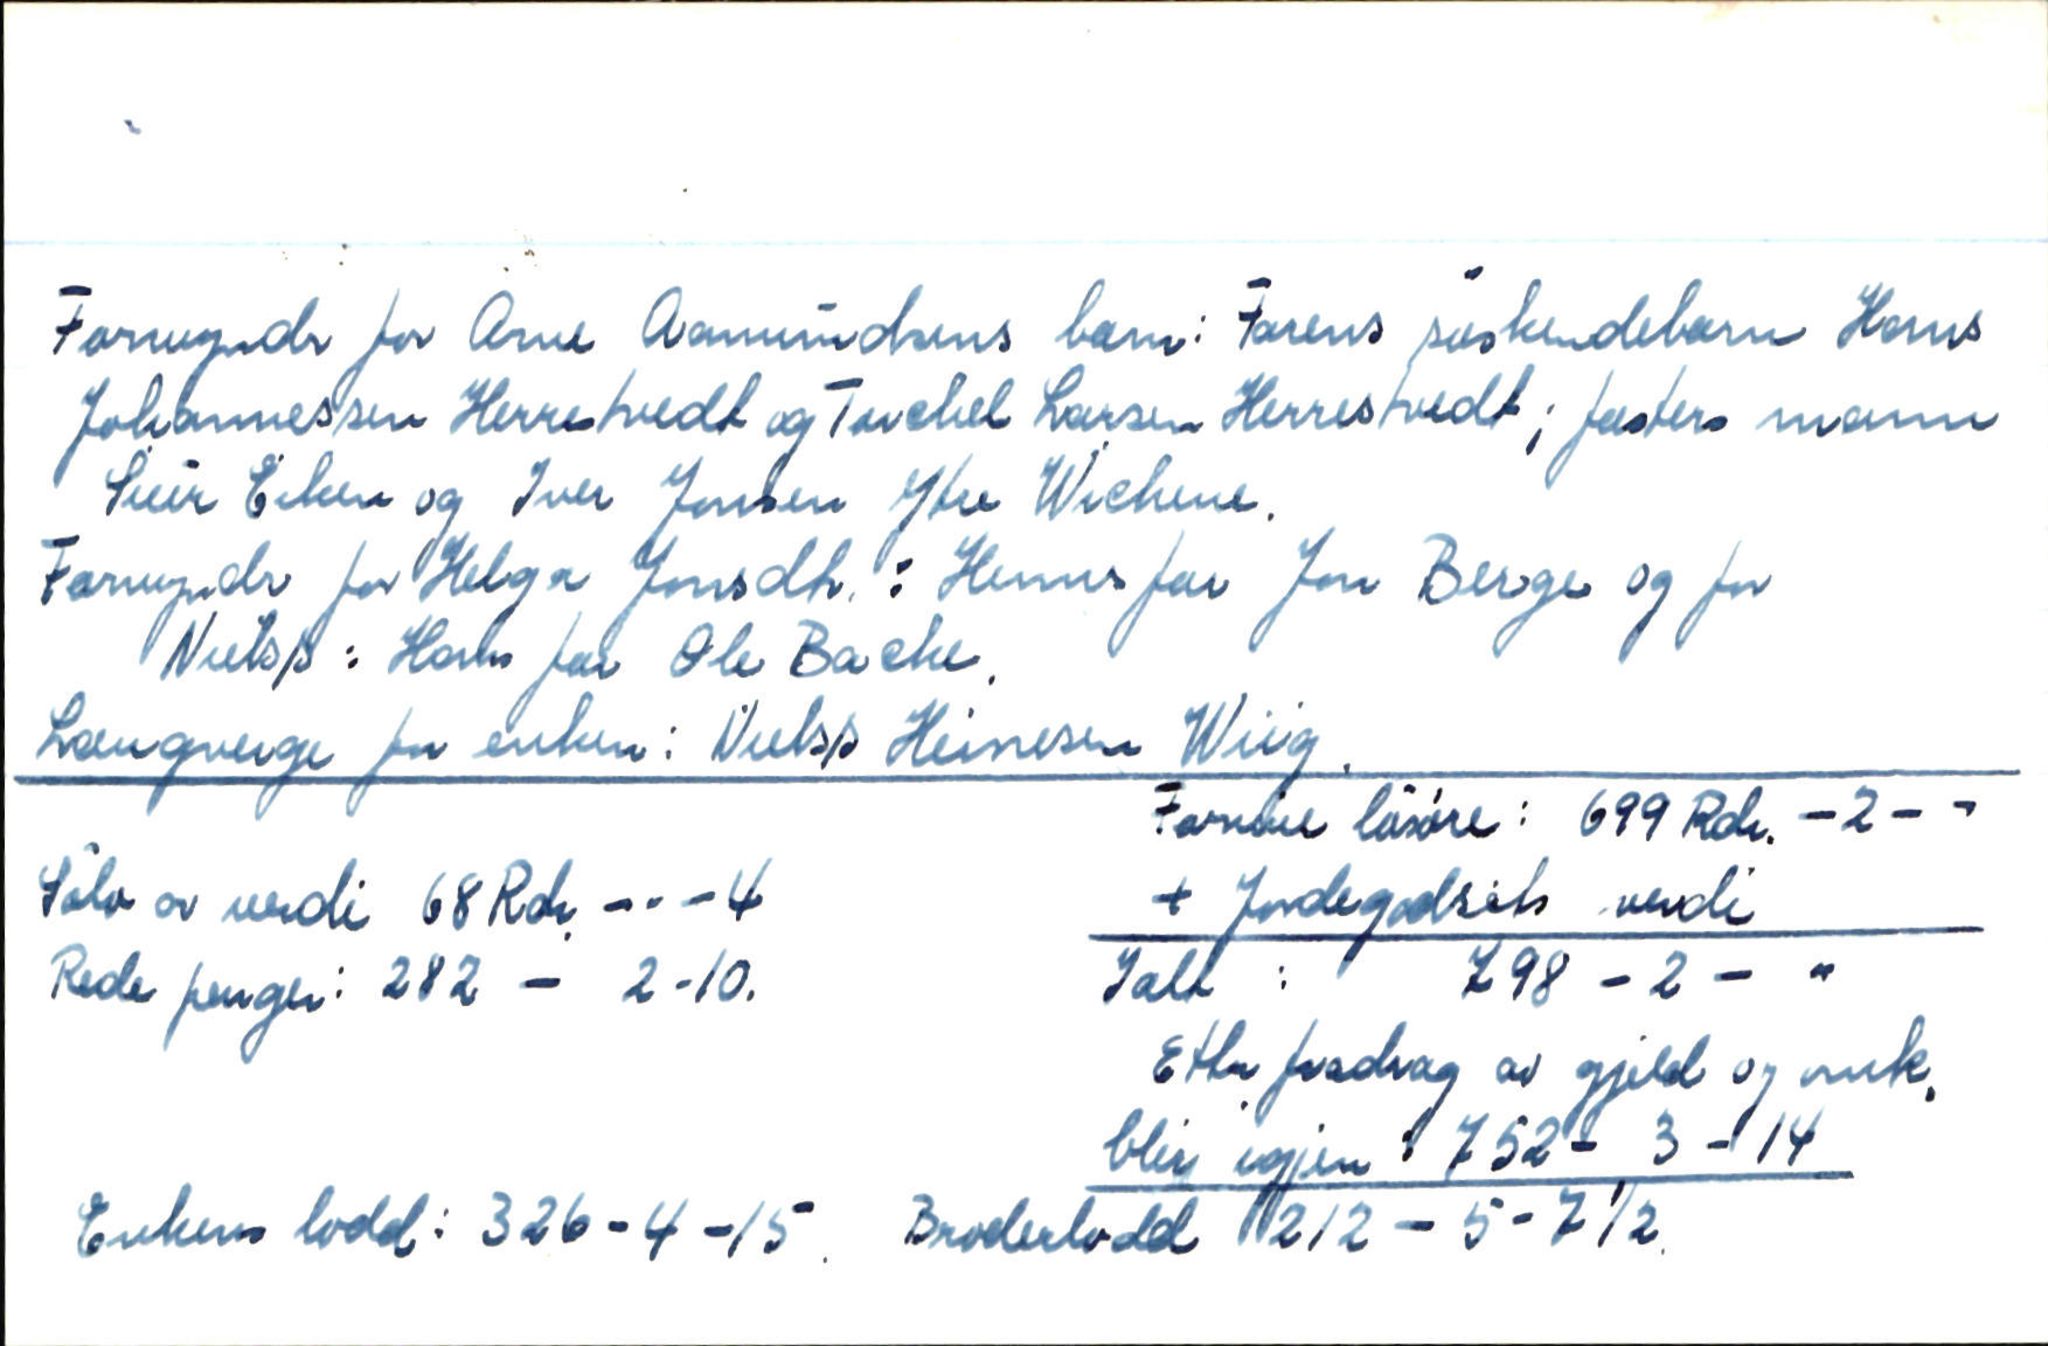 Formyndr for Arne Aamundsens barn: Farens söskendebarn Hans
Johannessen Herrestvedt og Torchel Larsen Herrestvedt; fasters mann
Siur Eiken og Iver Jonsen Ytre Wichene.
Formyndr for Helga Jonsdtr.: Hennes far Jon Berge og for
Niels/s: Hans far Ole Backe.
Laugverge for enken: Niels/s Heinesen Wiig.
Formue lösöre: 699 Rdr. - 2 - "
Sölv av verdi 68 Rdr. - - - 4
+ Jordegodsets verdi
Rede penger: 282 - 2 - 10.
Ialt : 798 - 2 - "
Etter fradrag av gjeld og omk.
blir igjen : 752 - 3 - 14
Enkens lodd: 326 - 4 - 15. Broderlodd 212 - 5 - 7 1/2.